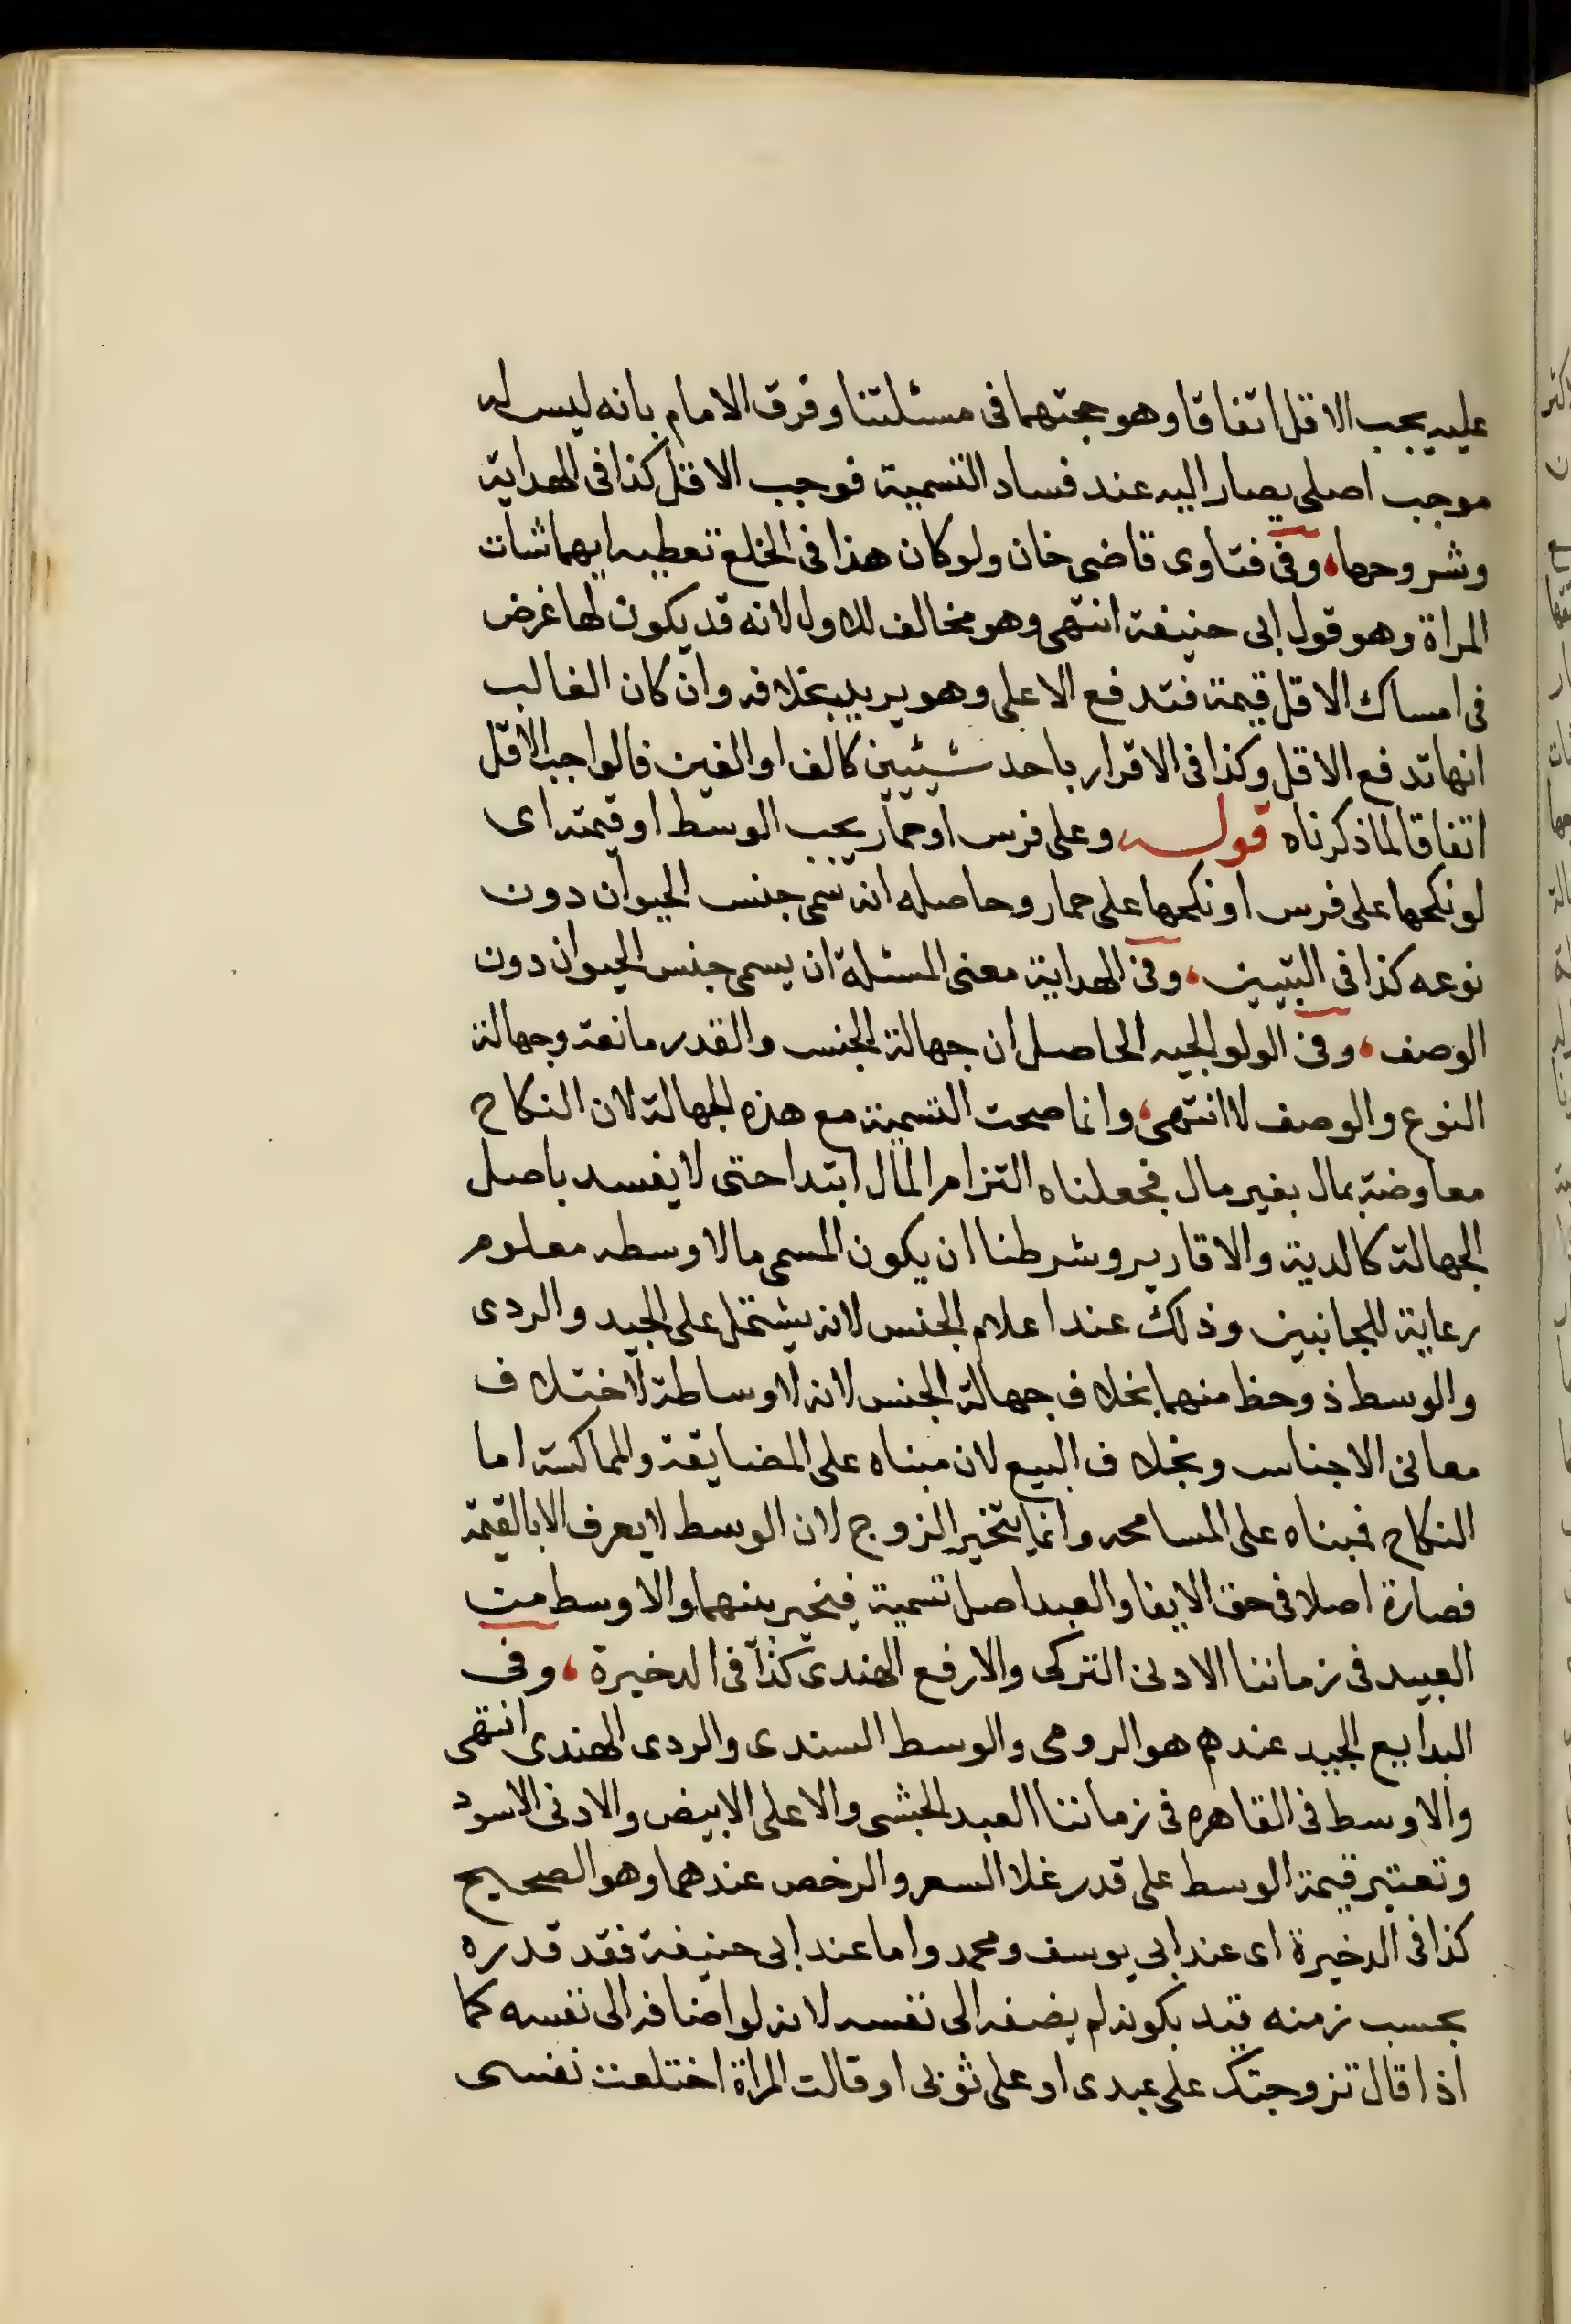 عليه يجب الاقل اتفاقا وهو حجتهما فى مسئلتنا وفرق الامام بانه ليس له
موجب اصلى يصار اليه عند فساد التسمية فوجب الاقل كذا فى الهداية
وشروحها، وفى فتاوى قاضى خان ولو كان هذا فى الخلع تعطيه ايهما شات
المراة وهو قول ابى حنيفة انتهى وهو مخالف للاول لانه قد يكون لها غرض
فى امساك الاقل قيمة فتدفع الاعلى وهو يريد بخلافه وان كان الغالب
انها تدفع الاقل وكذا فى الاقرار باحد شيئين كالف او الفين فالواجب الاقل
اتفاقا لما ذكرناه قوله وعلى فرس او حمار يجب الوسط او قيمته اى
لو نكحها على فرس او نكحها على حمار وحاصله انه سمى جنس الحيوان دون
نوعه كذا فى التبيين، وفى الهداية معنى المسئلة ان يسمى جنس الحيوان دون
الوصف، وفى الولوالجيه الحاصل ان جهالة الجنس والقدر مانعة وجهالة
النوع والوصف لا انتهى، وانما صحت التسمية مع هذه الجهالة لان النكاح
معاوضة بمال بغير مال فجعلناه التزام المال ابتدا حتى لا يفسد باصل
الجهالة كالدية والاقارير وشرطنا ان يكون المسمى مالا وسطه معلوم
رعاية للجانبين وذلك عند اعلام الجنس لانه يشتمل على الجيد والردى
والوسط ذو حظ منهما بخلاف جهالة الجنس لانه لا وساطة لاختلاف
معانى الاجناس وبخلاف البيع لان مبناه على المضايقة والمماكسة اما
النكاح فمبناه على المسامحه وانما يتخير الزوج لان الوسط لا يعرف الا بالقيمة
فصارة اصلا فى حق الايفا والعبد اصل تسمية فيخير بينهما والاوسط من
العبيد فى زماننا الادنى التركى والارفع الهندى كذا فى الدخيرة، وفى
البدايع الجيد عندهم هو الرومى والوسط السندى والردى الهندى انتهى
والاوسط فى القاهره فى زماننا العبد الحبشى والاعلى الابيض والادنى الاسود
وتعتبر قيمة الوسط على قدر غلا السعر والرخص عندهما وهو الصحيح
كذا فى الدخيرة اى عند ابى يوسف ومحمد واما عند ابى حنيفة فقد قدره
بحسب زمنه قيد بكونه لم يضفه الى نفسه لانه لو اضافه الى نفسه كما
اذا قال تزوجتك على عبدى او على ثوبى او قالت المراة اختلعت نفسى